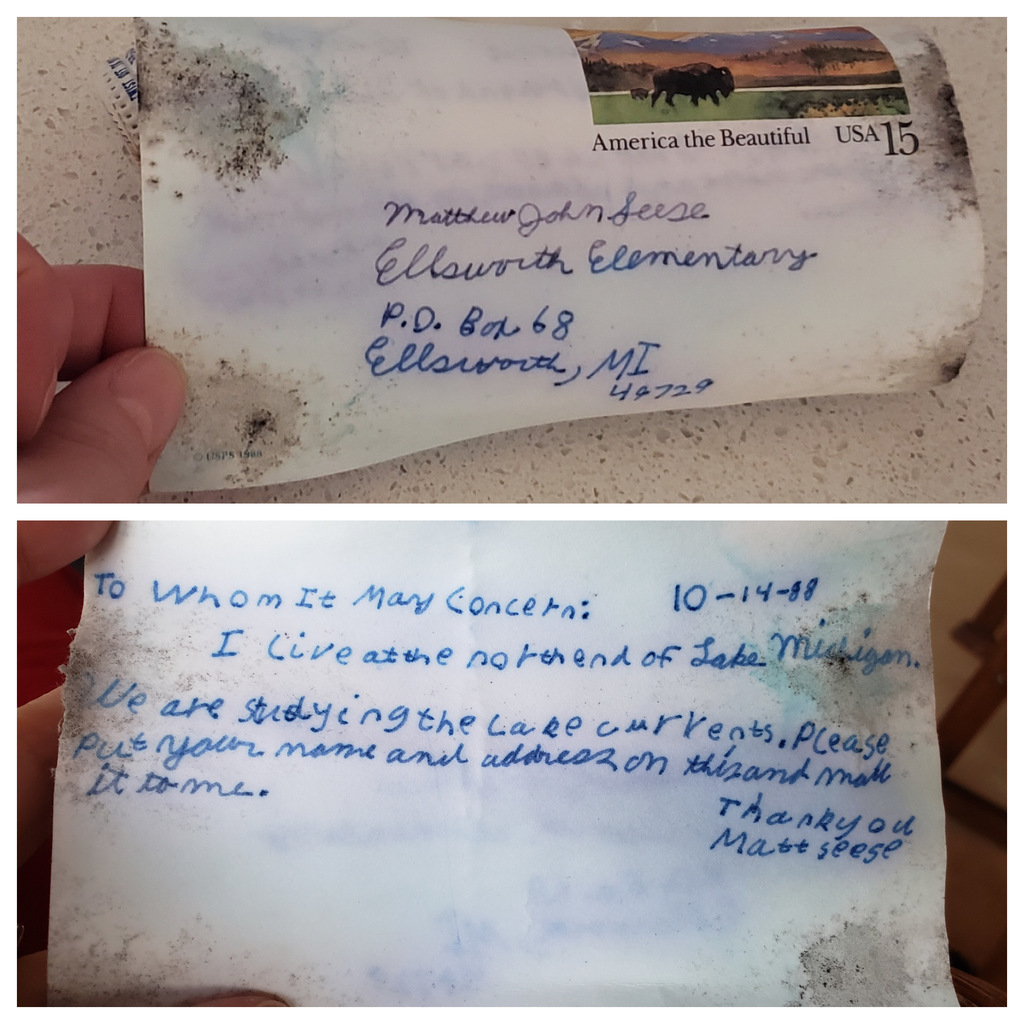 America the Beautiful USA 15
Matthew John Seese
Ellsworth Elementary
P.O. Box 68
Ellsworth, MI
49729
© USPS 1988
To Whom It May Concern: 10-14-88
I live at the north end of Lake Michigan.
We are studying the Lake currents. Please
put your name and address on this and mail
it to me.
Thank you
Matt Seese